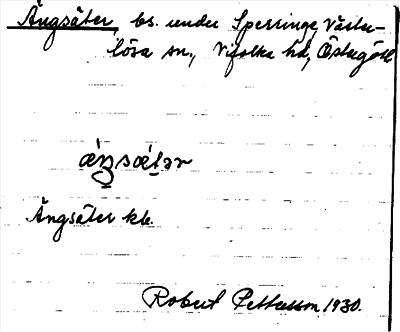 Ängsäter, bs. under Sperringe, Väster-
lösa sn., Vifolka hd, Östergötl
Ängsäter kb.
Robert Pettersson 1930.